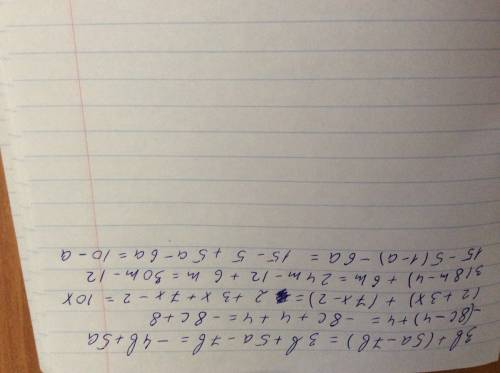 3b + (5a - 7b) = 3b + 5a - 7b = -4b + 5a
-(8c - 4) + 4 = -8c + 4 + 4 = -8c + 8
(2 + 3x) + (7x - 2) = 2 + 3x + 7x - 2 = 10x
3(8m - 4) + 6m = 24m - 12 + 6m = 30m - 12
15 - 5(1 - a) - 6a = 15 - 5 + 5a - 6a = 10 - a